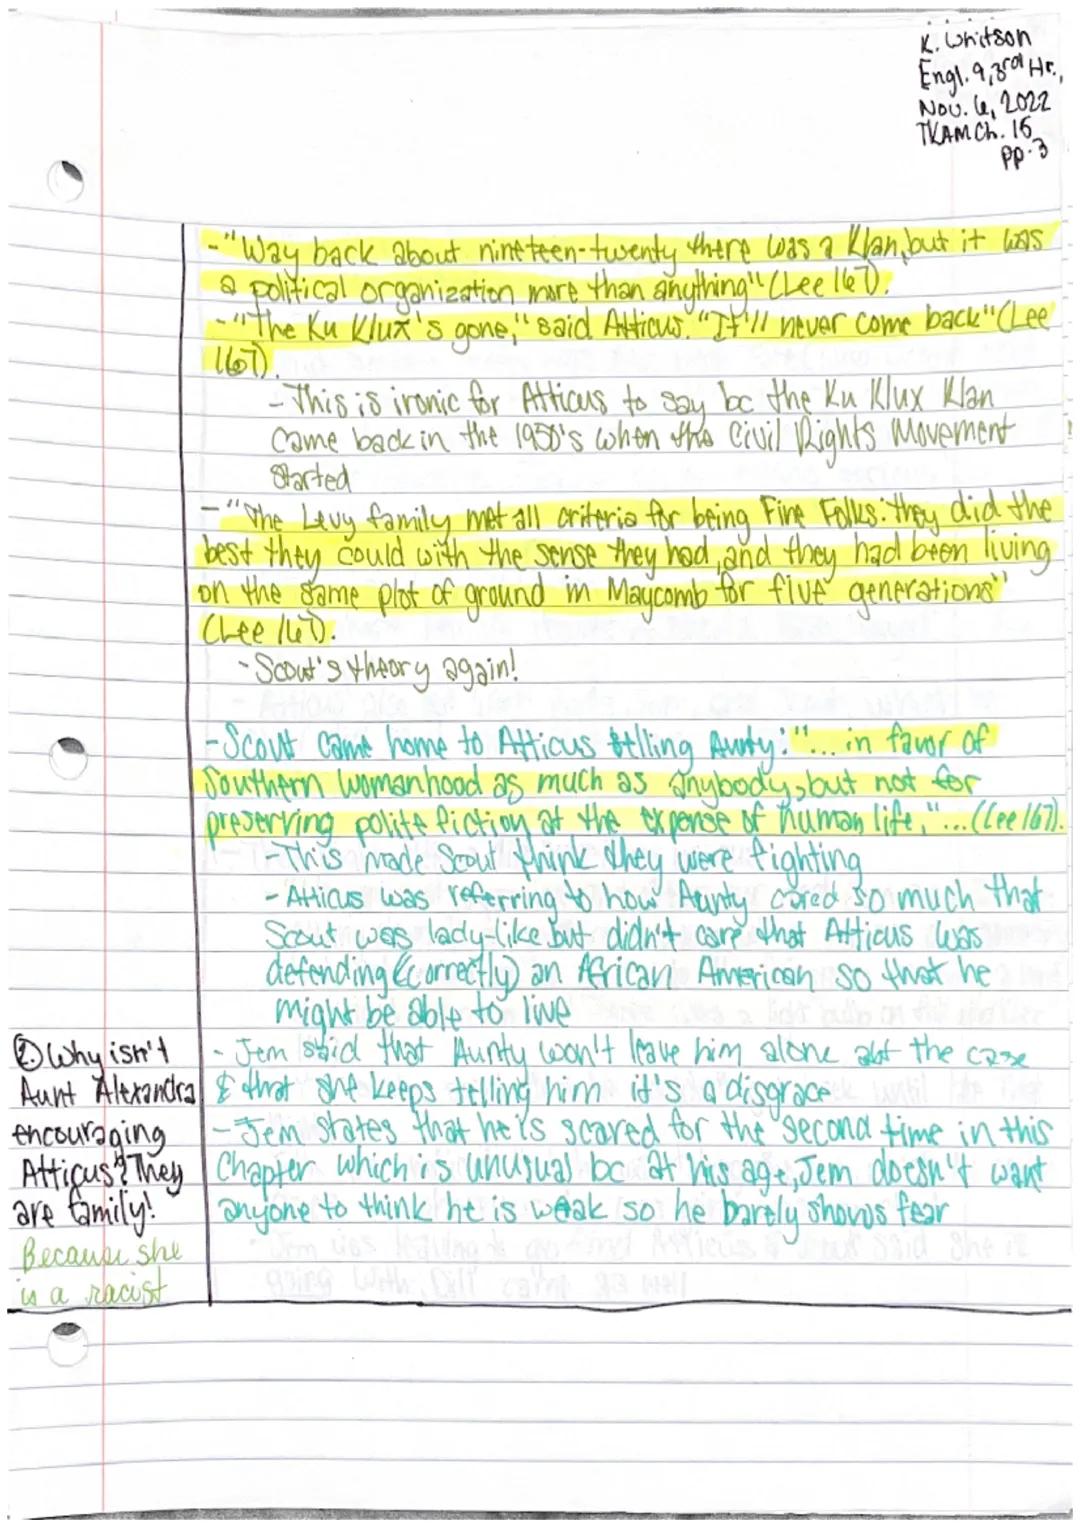 K. Whitson
Engl. 9, 3rd Hr.,
Nov. 6, 2022
TKAM Ch. 15
pp. 3
-"Way back about nineteen-twenty there was a Klan, but it was
a political organization more than anything" (Lee 167).
-"The Ku Klux's gone," said Atticus. "It'll never come back" (Lee
167).
- This is ironic for Atticus to say bc the Ku Klux Klan
came back in the 1950's when the Civil Rights Movement
started
-"The Levy family met all criteria for being Fine Folks: they did the
best they could with the sense they had, and they had been living
on the same plot of ground in Maycomb for five generations"
(Lee 167).
- Scout's theory again!
-Scout came home to Atticus telling Aunty: "... in favor of
Southern womanhood as much as anybody, but not for
preserving polite fiction at the expense of human life,"... (Lee 167).
-This made Scout think they were fighting
- Atticus was referring to how Aunty cared so much that
Scout was lady-like but didn't care that Atticus was
defending (correctly) an African American so that he
might be able to live
- Jem said that Aunty won't leave him alone abt the case
& that she keeps telling him it's a disgrace
- Jem states that he is scared for the second time in this
Chapter which is unusual bc at his age, Jem doesn't want
anyone to think he is weak so he barely shows fear
② Why isn't
Aunt Alexandra
encouraging
Atticus? They
are family!
Because she
is a racist